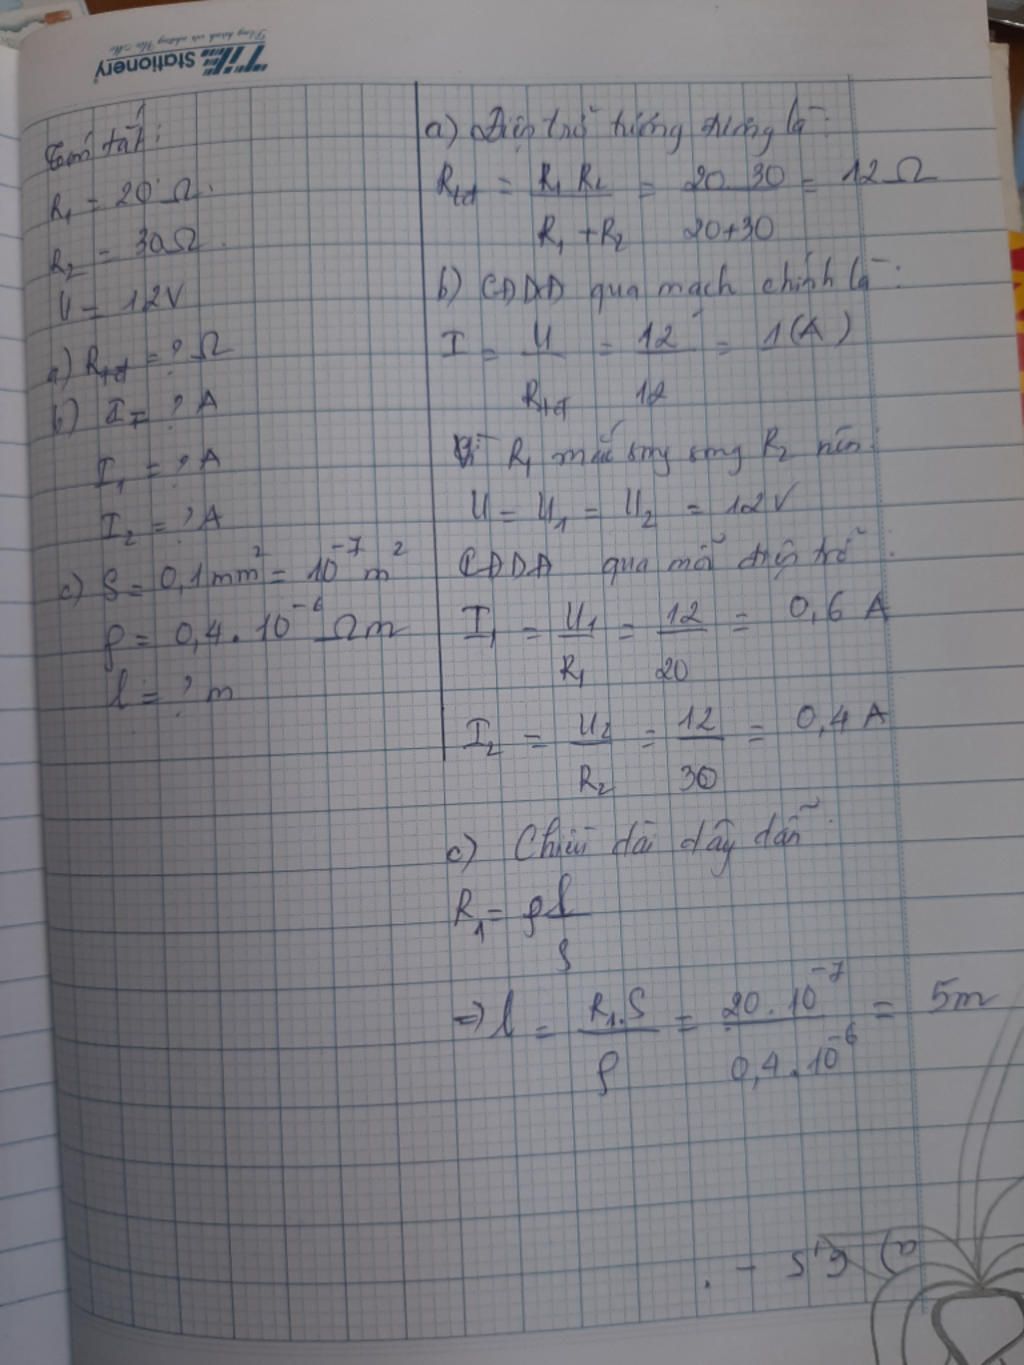 Tik Stationery
Tóm tắt:
R₁ = 20 Ω
R₂ = 30 Ω
U = 12V
a) Rtđ = ? Ω
b) I = ? A
I₁ = ? A
I₂ = ? A
c) S = 0,1mm² = 10⁻⁷ m²
ρ = 0,4 . 10⁻⁶ Ωm
l = ? m
a) Điện trở tương đương là:
Rtđ = R₁ R₂ / R₁ + R₂ = 20.30 / 20+30 = 12 Ω
b) CĐDĐ qua mạch chính là:
I = U / Rtđ = 12 / 12 = 1(A)
Vì R₁ mắc song song R₂ nên:
U = U₁ = U₂ = 12V
CĐDĐ qua mỗi điện trở:
I₁ = U₁ / R₁ = 12 / 20 = 0,6 A
I₂ = U₂ / R₂ = 12 / 30 = 0,4 A
c) Chiều dài dây dẫn:
R₁ = ρ l / S
=> l = R₁.S / ρ = 20 . 10⁻⁷ / 0,4 . 10⁻⁶ = 5m